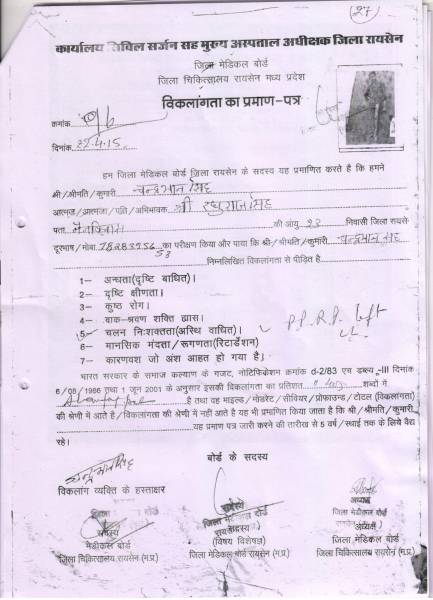 27
कार्यालय सिविल सर्जन सह मुख्य अस्पताल अधीक्षक जिला रायसेन
जिला मेडिकल बोर्ड
जिला चिकित्सालय रायसेन मध्य प्रदेश
विकलांगता का प्रमाण-पत्र
क्रमांक
दिनांक 22-4-15
हम जिला मेडिकल बोर्ड जिला रायसेन के सदस्य यह प्रमाणित करते है कि हमने
श्री/श्रीमति/कुमारी चन्द्रभान सिंह
आत्मज/आत्मजा/पति/अभिभावक श्री रघुराज सिंह
पता की आयु 23 निवासी जिला रायसेन
दूरभाष/मोबा. का परीक्षण किया और पाया कि श्री/श्रीमति/कुमारी चन्द्रभान सिंह
निम्नलिखित विकलांगता से पीड़ित है
1– अन्धता(दृष्टि बाधित)।
2– दृष्टि क्षीणता।
3– कुष्ठ रोग।
4– वाक-श्रवण शक्ति ह्रास।
5– चलन निःशक्तता(अस्थि बाधित)।
6– मानसिक मंदता/रूगणता(रिटार्डेशन)
7– कारणवश जो अंश आहत हो गया है।
P.P.R.P. left
भारत सरकार के समाज कल्याण के गजट, नोटिफिकेशन क्रमांक d-2/83 एस डब्ल्यू -III दिनांक
6/08/1986 तथा 1 जून 2001 के अनुसार इसकी विकलांगता का प्रतिशत शब्दों में
है तथा वह माइल्ड/मोडरेट/सीवियर/प्रोफाउन्ड/टोटल (विकलांगता)
की श्रेणी में आते है/विकलांगता की श्रेणी में नही आते है यह भी प्रमाणित किया जाता है कि श्री/श्रीमति/कुमारी
यह प्रमाण पत्र जारी करने की तारीख से 5 वर्ष/स्थाई तक के लिये वैद्य
रहे।
बोर्ड के सदस्य
विकलांग व्यक्ति के हस्ताक्षर
सदस्य
मेडीकल बोर्ड
जिला चिकित्सालय रायसेन (म.प्र.)
सदस्य
(विषय विशेषज्ञ)
जिला मेडीकल बोर्ड रायसेन (म.प्र.)
अध्यक्ष
जिला मेडीकल बोर्ड
जिला चिकित्सालय रायसेन (म.प्र.)